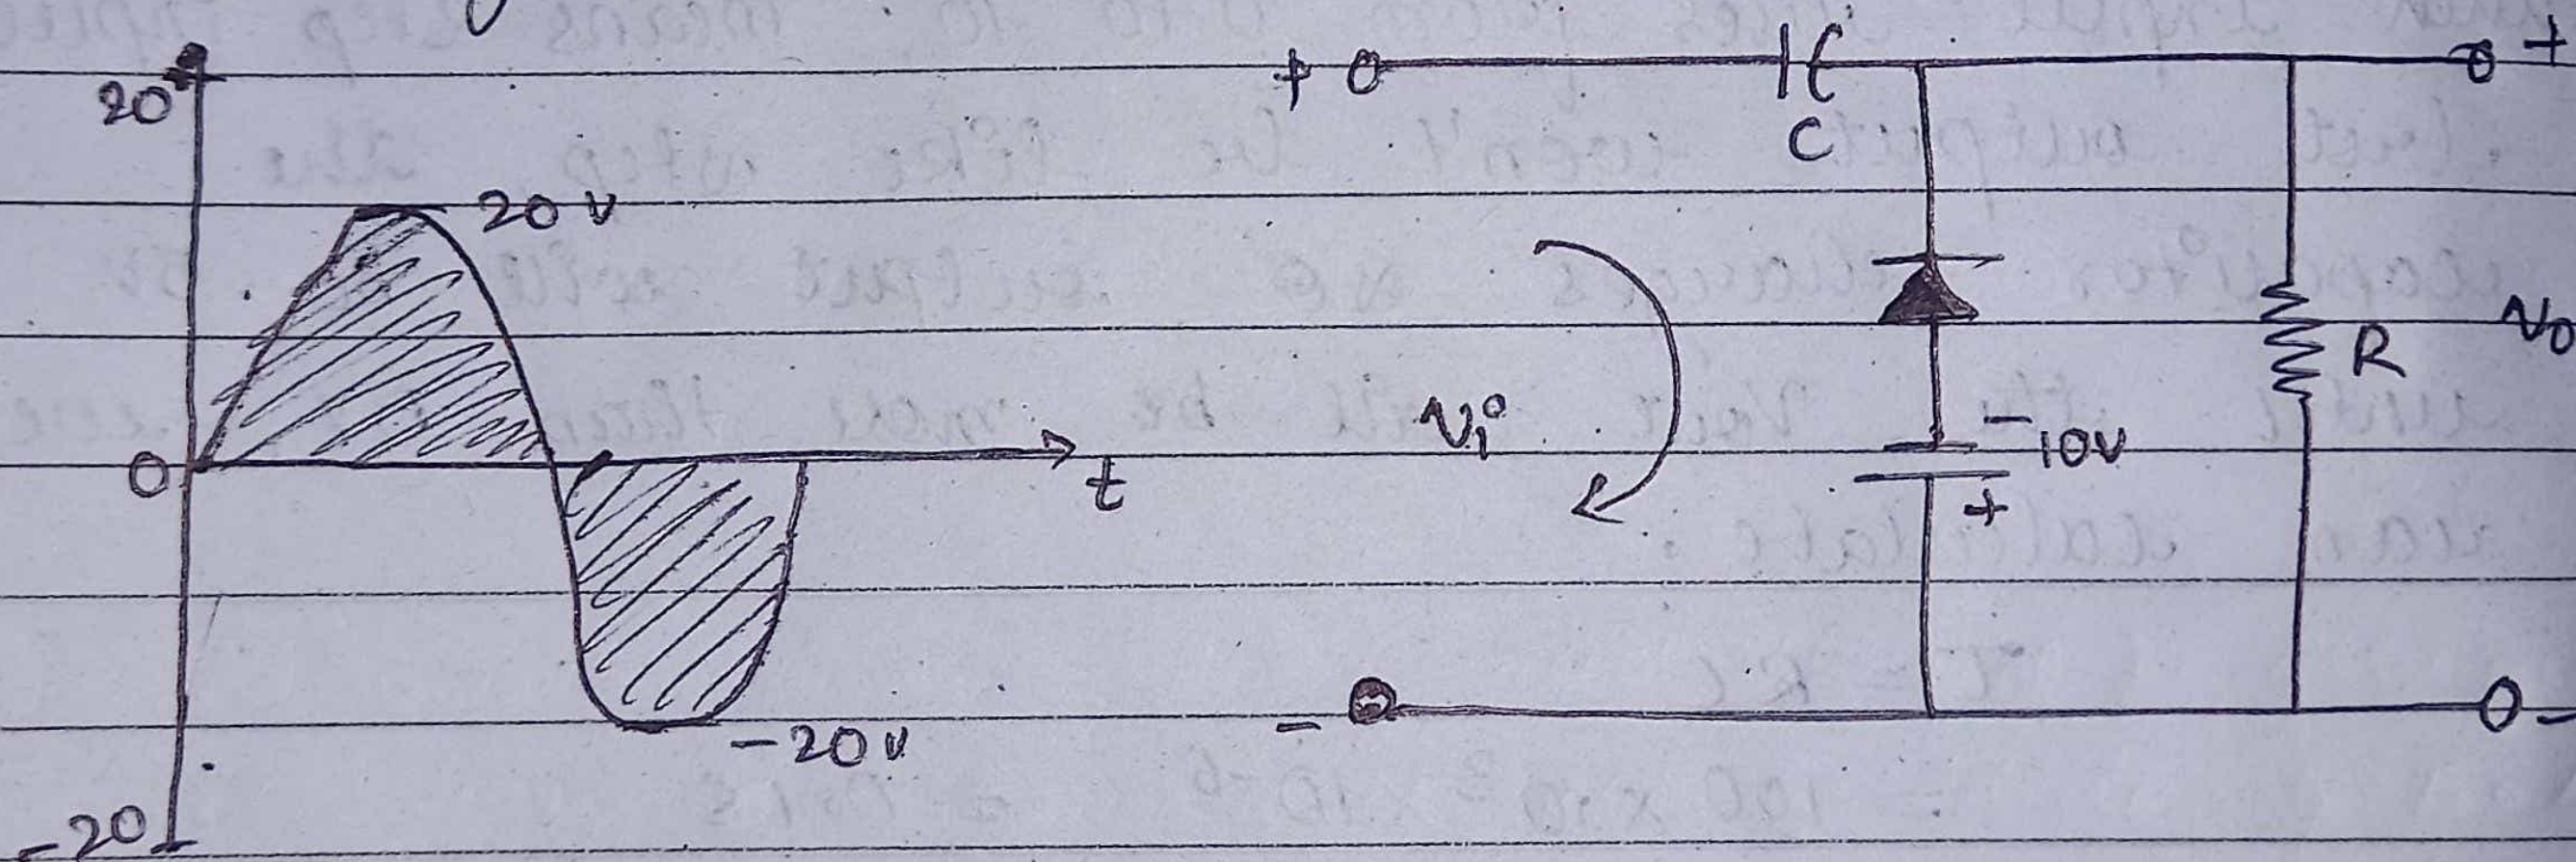 20
20 v
0
t
-20 v
-20
+
C
+
vi
- 10v
+
R
v0
-
-